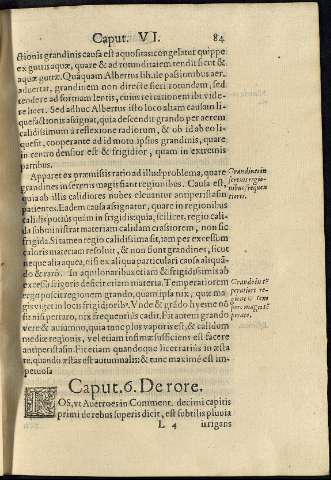 Caput. VI. 84
ctionis grandinis causa est aquositas: congelatur quippe
ex guttis aquæ, quare & ad rotunditatem tendit sicut &
aquæ guttæ. Quãquam Albertus lib. de passionibus aer.
aduertat, grandinem non directe fieri rotundam, sed
tendere ad formam lentis, cuius rei rationem ibi vide-
re licet. Sed adhuc Albertus isto loco aliam causam li-
quefactionis assignat, quia descendit grando per aerem
calidissimum à reflexione radiorum, & ob id ab eo li-
quescit, cooperante ad id motu ipsius grandinis, quare
in centro densior est & frigidior, quam in extremis
partibus.
Apparet ex præmissis ratio ad illud problema, quare
grandines in feruns magis fiant regionibus. Causa est,
quia ab illis calidiores nubes eleuantur antiperistasin
patientes. Eadem causa assignatur, quare in regionibus
calidis potius quàm in frigidis: quia, scilicet, regio cali-
da subministrat materiam calidam crassiorem, non sic
frigida. Si tamen regio calidissima sit, tam per excessum
caloris materiam resoluit, & non fiunt grandines, sicut
neque alia aquea, nisi ex aliqua particulari causa aliquã-
do & raro. In aquilonaribus etiam & frigidissimis ab
excessu frigoris deficit etiam materia. Temperatiorem
ergo poscit regionem grando, quam ipsa nix, quæ ma-
gis viget in locis frigidioribus. Vnde & grãdo hyeme nõ
fit nisi per raro, nix frequentius cadit. Fit autem grando
vere & autumno, quia tunc plus vaporis est, & calidum
mediæ regionis, vel etiam infimæ sufficiens est facere
antiperistasin. Fit etiam quandoque licet rarius in æsta
te, quando æstas est autumnalis: & tunc maximè est im-
petuosa
Grandines in
feruens regio-
nibus frequen
tiores.
Caput. 6. De rore.
ROS, vt Auerroes in Comment. decimi capitis
primi de rebus superis dicit, est subtilis pluuia
L 4 irrigans